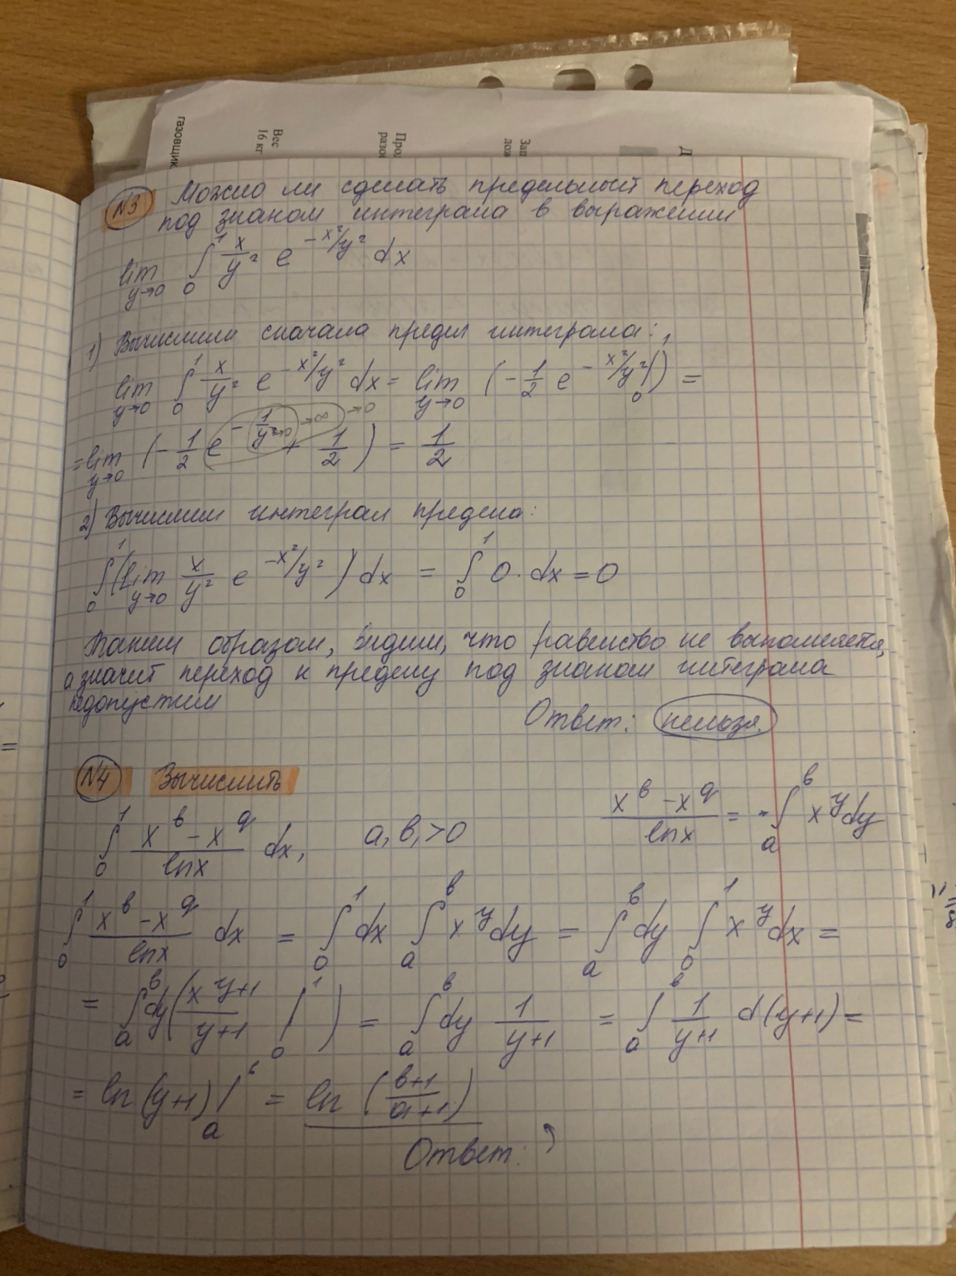 газовщик
Вес
16 кг
№3 Можно ли сделать предельный переход
под знаком интеграла в выражении
lim y→0 ∫₀¹ x/y² e^(-x²/y²) dx
1) Вычислим сначала предел интеграла:
lim y→0 ∫₀¹ x/y² e^(-x²/y²) dx = lim y→0 (-1/2 e^(-x²/y²) |₀¹) =
= lim y→0 (-1/2 e^(-1/y²) + 1/2) = 1/2
→0 →∞ →0
2) Вычислим интеграл предела:
∫₀¹ (lim y→0 x/y² e^(-x²/y²)) dx = ∫₀¹ 0·dx = 0
Таким образом, видим, что равенство не выполняется,
а значит переход к пределу под знаком интеграла
недопустим
Ответ: нельзя.
№4 Вычислить
∫₀¹ (x^b - x^a)/ln x dx, a, b, >0 (x^b - x^a)/ln x = ∫ₐᵇ x^y dy
∫₀¹ (x^b - x^a)/ln x dx = ∫₀¹ dx ∫ₐᵇ x^y dy = ∫ₐᵇ dy ∫₀¹ x^y dx =
= ∫ₐᵇ dy (x^(y+1)/(y+1) |₀¹) = ∫ₐᵇ dy 1/(y+1) = ∫ₐᵇ 1/(y+1) d(y+1) =
= ln(y+1) |ₐᵇ = ln((b+1)/(a+1))
Ответ: